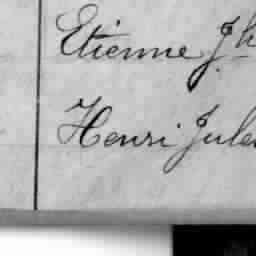 Etienne Jh
Henri Jules